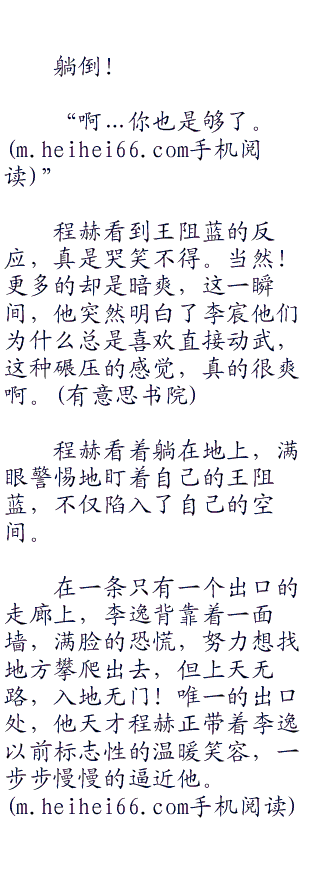 躺倒！
“啊…你也是够了。
(m.heihei66.com手机阅
读)”
程赫看到王阻蓝的反
应，真是哭笑不得。当然！
更多的却是暗爽，这一瞬
间，他突然明白了李宸他们
为什么总是喜欢直接动武，
这种碾压的感觉，真的很爽
啊。(有意思书院)
程赫看着躺在地上，满
眼警惕地盯着自己的王阻
蓝，不仅陷入了自己的空
间。
在一条只有一个出口的
走廊上，李逸背靠着一面
墙，满脸的恐慌，努力想找
地方攀爬出去，但上天无
路，入地无门！唯一的出口
处，他天才程赫正带着李逸
以前标志性的温暖笑容，一
步步慢慢的逼近他。
(m.heihei66.com手机阅读)